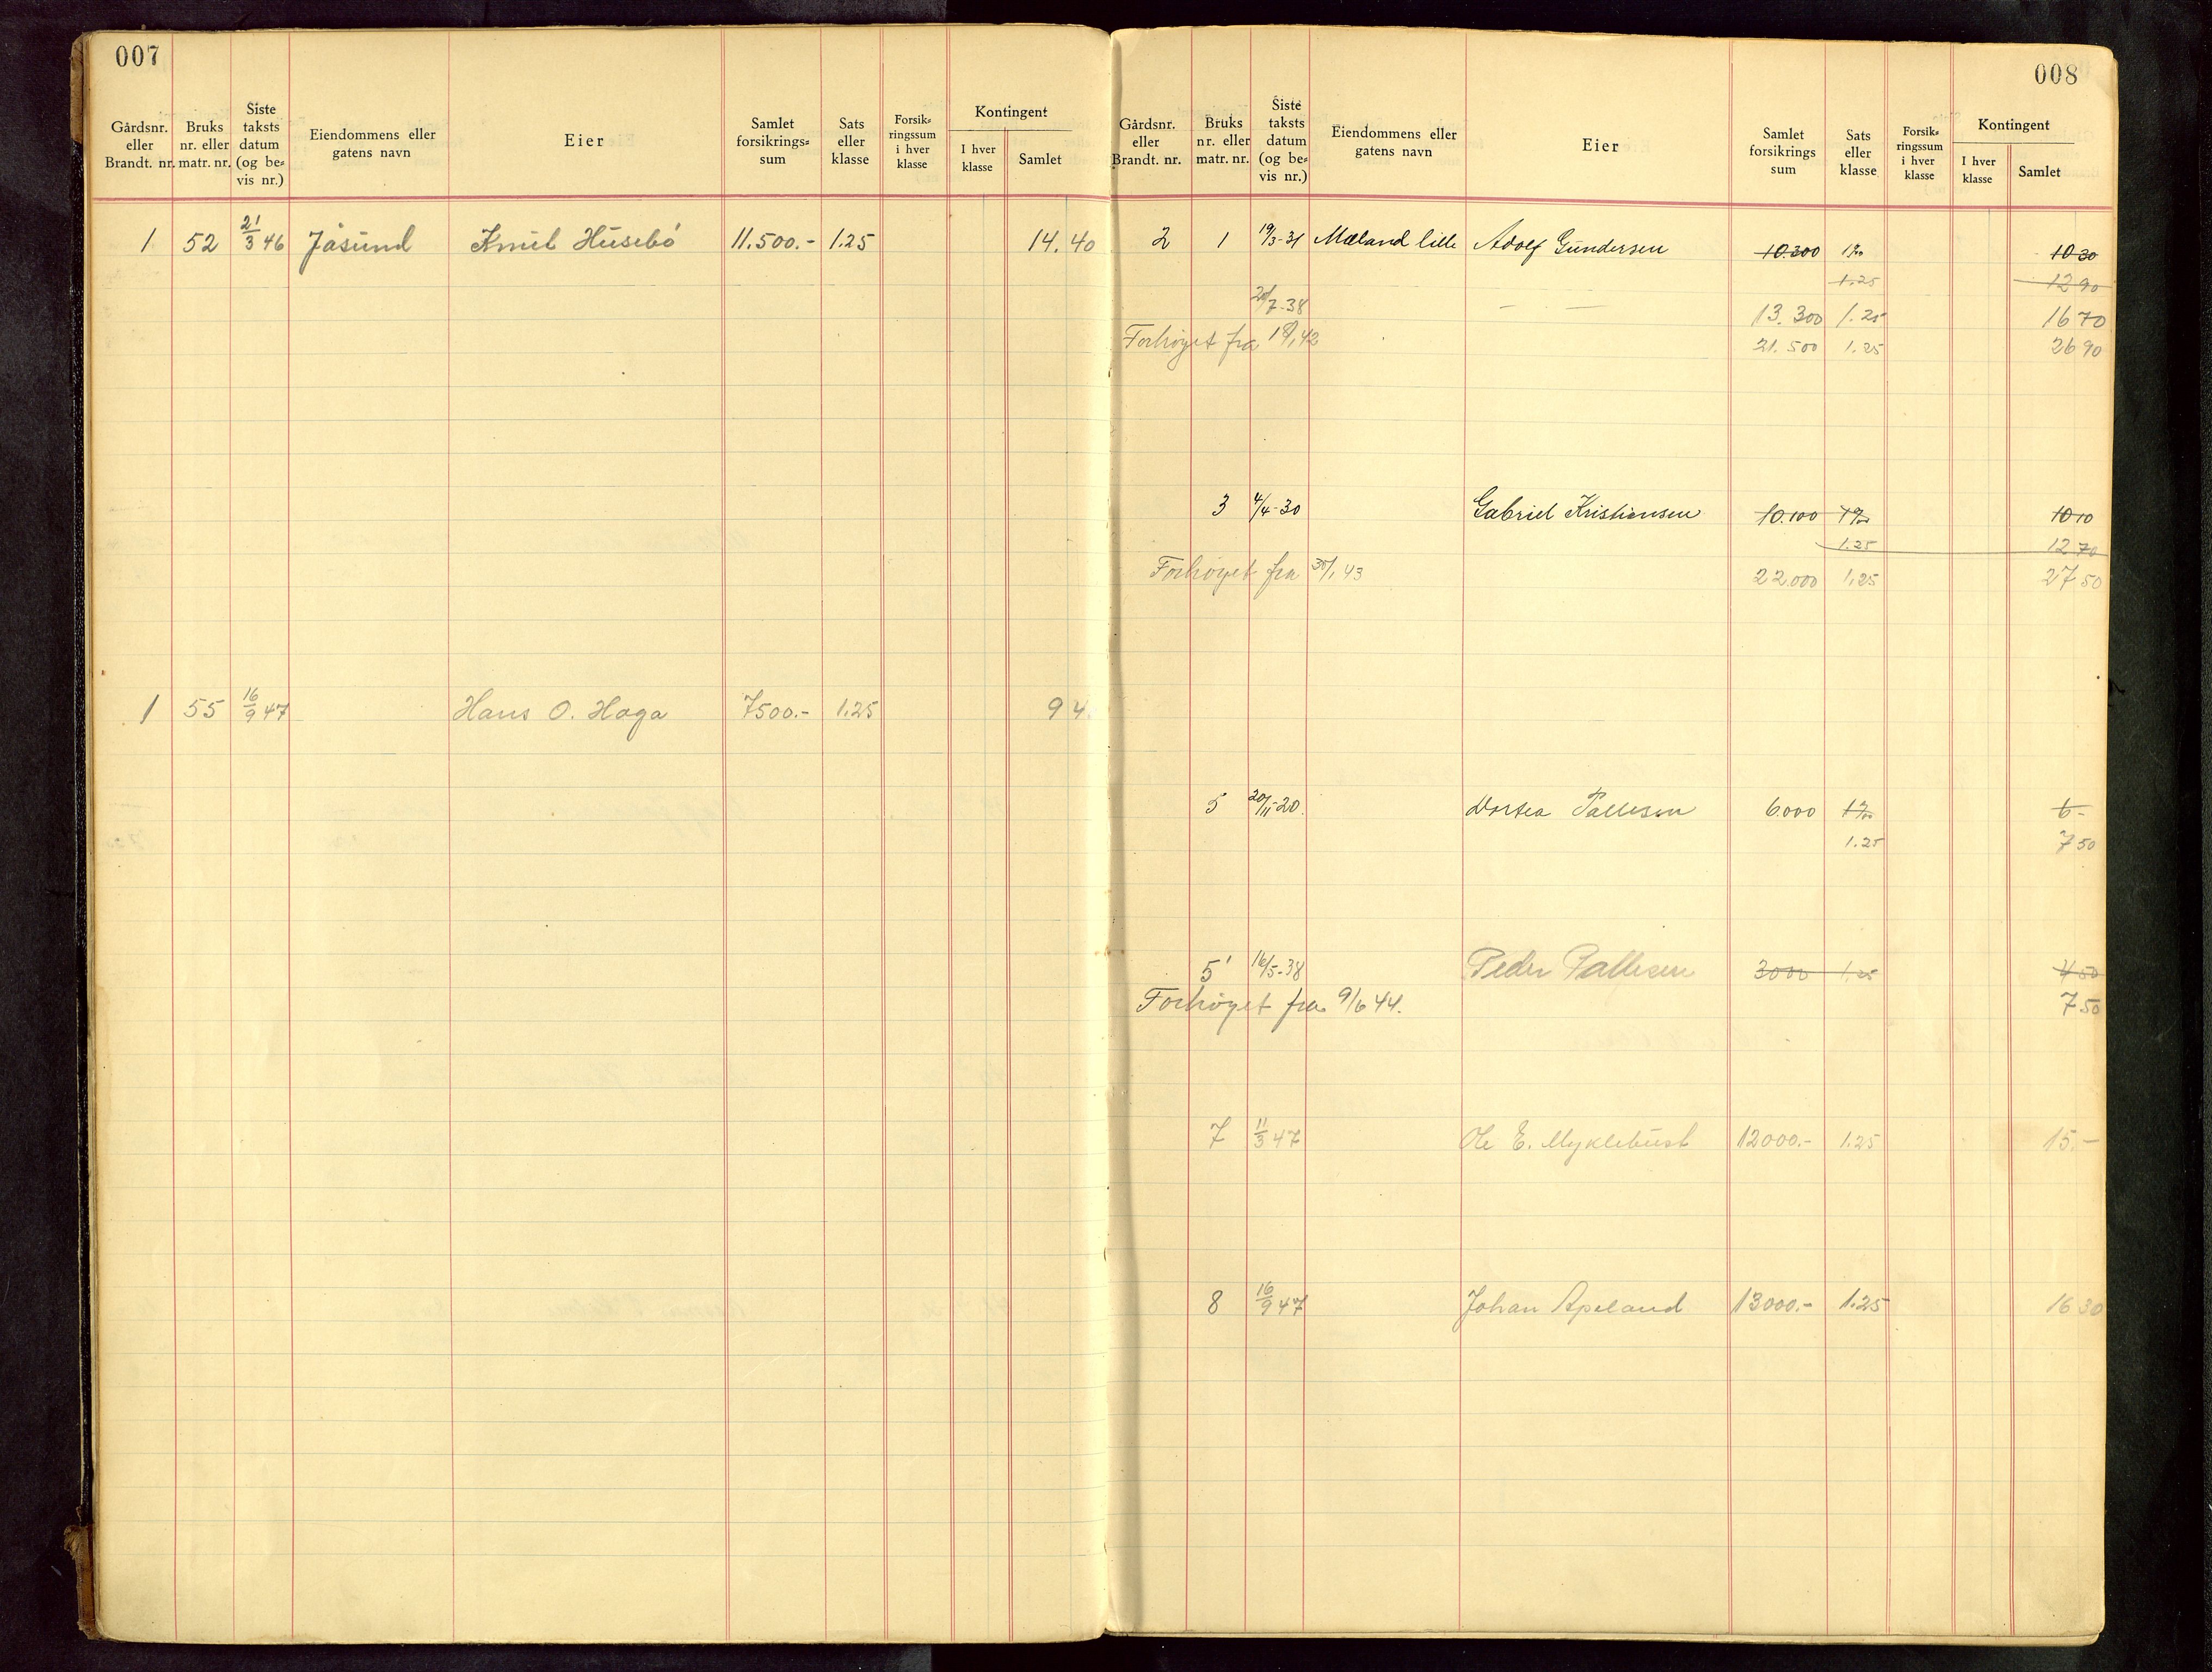 007
Gårdsnr. eller Brandt. nr. Bruks nr. eller matr. nr. Siste taksts datum (og be= vis nr.) Eiendommens eller gatens navn Eier Samlet forsikrings= sum Sats eller klasse Forsik= ringssum i hver klasse Kontingent I hver klasse Samlet
1 52 21/3 46 Jåsund Knut Husebö 11.500.- 1.25 14.40
1 55 16/9 47 Hans O. Haga 7500.- 1.25 9 4
008
Gårdsnr. eller Brandt. nr. Bruks nr. eller matr. nr. Siste taksts datum (og be= vis nr.) Eiendommens eller gatens navn Eier Samlet forsikrings sum Sats eller klasse Forsik= ringssum i hver klasse Kontingent I hver klasse Samlet
2 1 19/3-31 Mæland lille Adolf Gundersen 10.300 1‰ 10 30
1.25 12 90
20/7-38 — — 13.300 1.25 16 70
Forhøyet fra 42 21.500 1.25 26 90
3 4/4-30 Gabriel Kristiansen 10.100 1‰ 10 10
1.25 12 70
Forhøyet fra 30/1 43 22.000 1.25 27 50
5 20/11-20 Dortea Pallesen 6.000 1‰ 6-
1.25 7 50
5' 16/5-38 Peder Pallesen 3000 1.25 50
Forhøyet fra 9/6 44. 7 50
7 11/3 47 Ole E. Myklebust 12000.- 1.25 15.-
8 16/9 47 Johan Apeland 13000.- 1.25 16 30